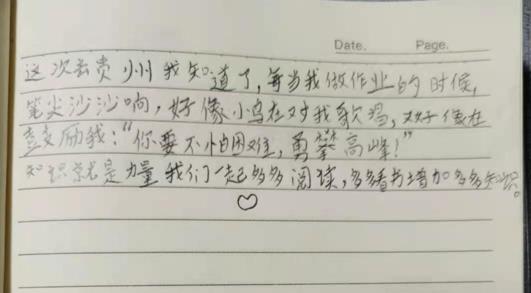 Date. Page.
这次去贵州我知道了,每当我做作业的时候,
笔尖沙沙响,好像小鸟在对我歌唱,又好像在
鼓励我:“你要不怕困难,勇攀高峰!”
知识就是力量我们一起多多阅读,多多看书增加多多知识。